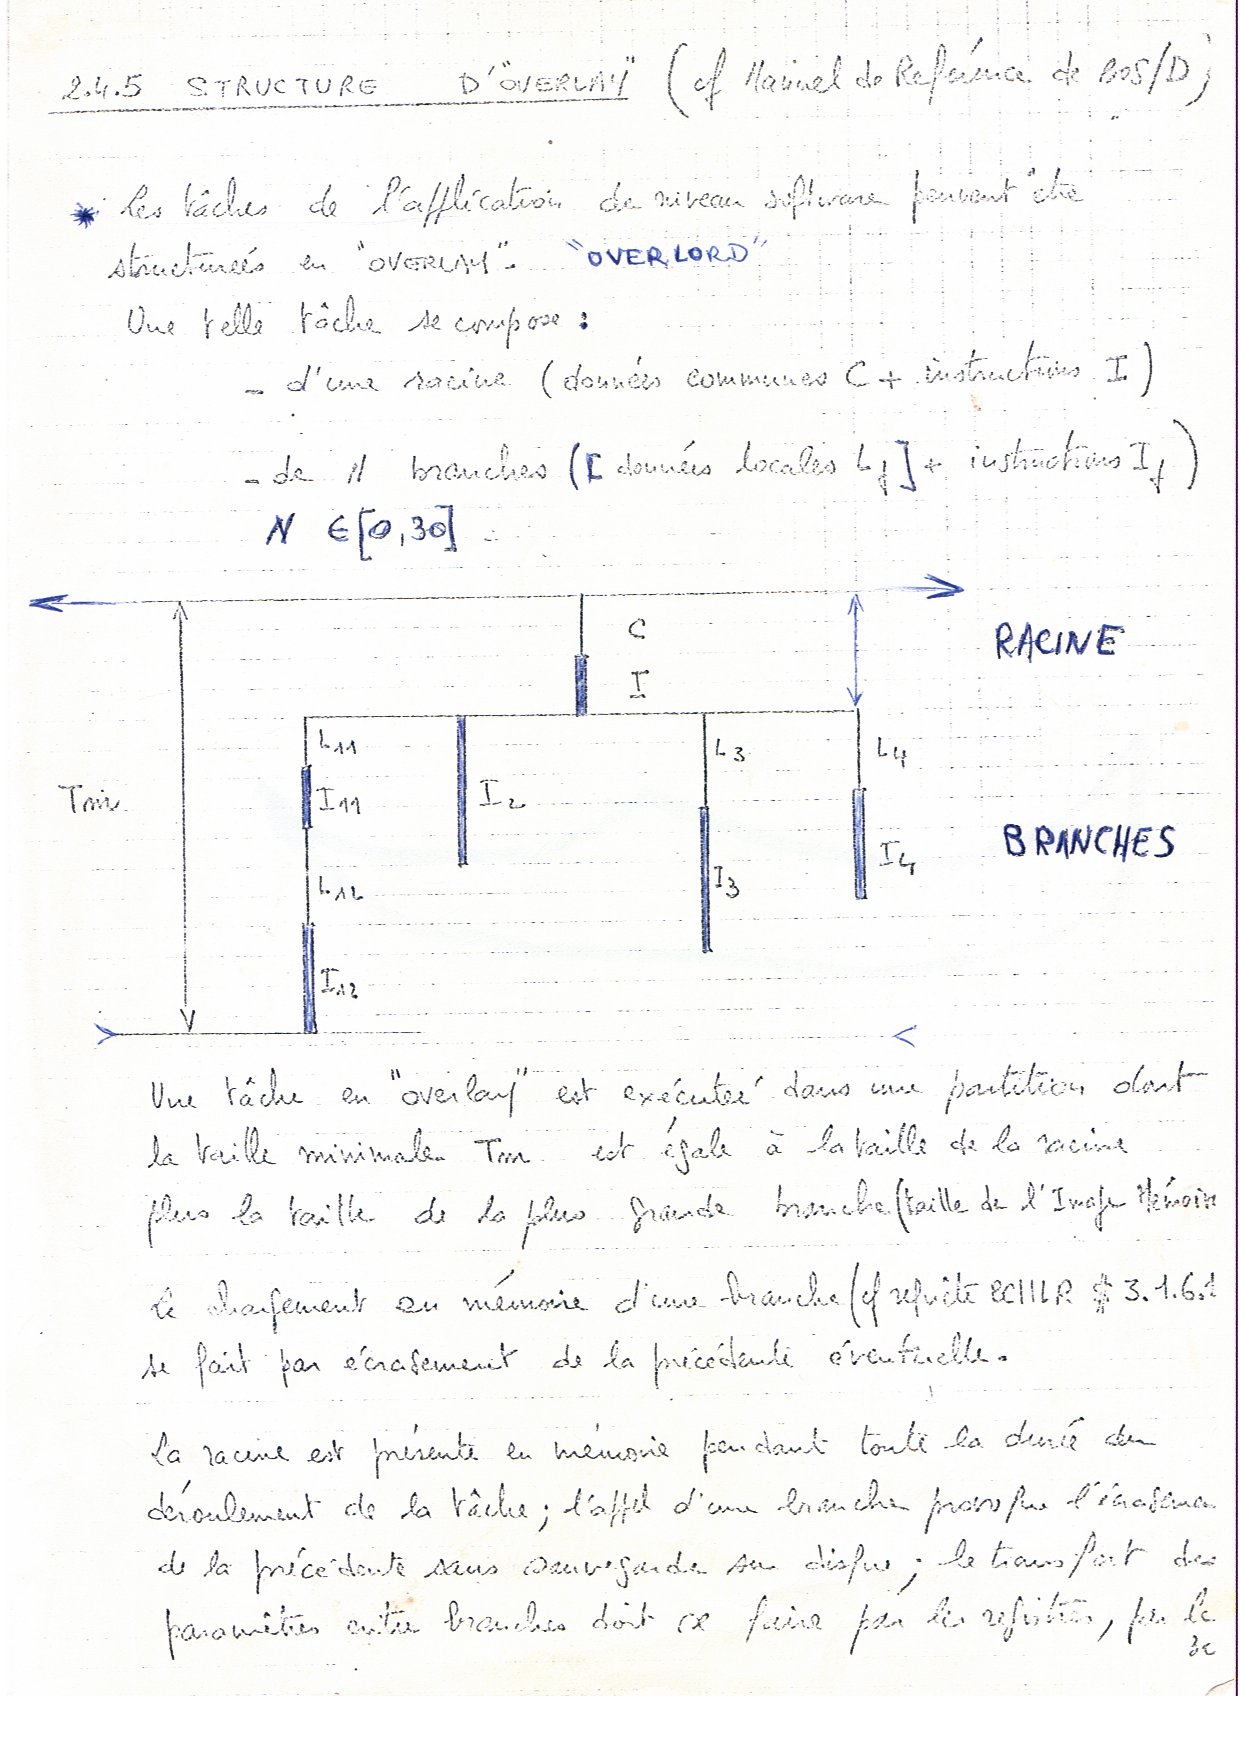 2.4.5 STRUCTURE D'"OVERLAY" (cf Manuel de Référence de BOS/D)
* Les tâches de l'application de niveau software peuvent être
structurées en "OVERLAY". "OVERLORD"
Une telle tâche se compose :
- d'une racine (données communes C + instructions I)
- de N branches ([données locales Lj] + instructions Ij)
N ∈ [0,30]
C
RACINE
I
L11
L3
L4
Tm
I11
I2
BRANCHES
I4
L12
I3
I12
Une tâche en "overlay" est exécutée dans une partition dont
la taille minimale Tm est égale à la taille de la racine
plus la taille de la plus grande branche (taille de l'Image Mémoire
Le chargement en mémoire d'une branche (cf requête $ 3.1.6.1
se fait par écrasement de la précédente éventuelle.
La racine est présente en mémoire pendant toute la durée du
déroulement de la tâche ; l'appel d'une branche provoque l'écrasemen
de la précédente sans sauvegarde sur disque ; le transfert des
paramètres entre branches doit ce faire par les registres, par le